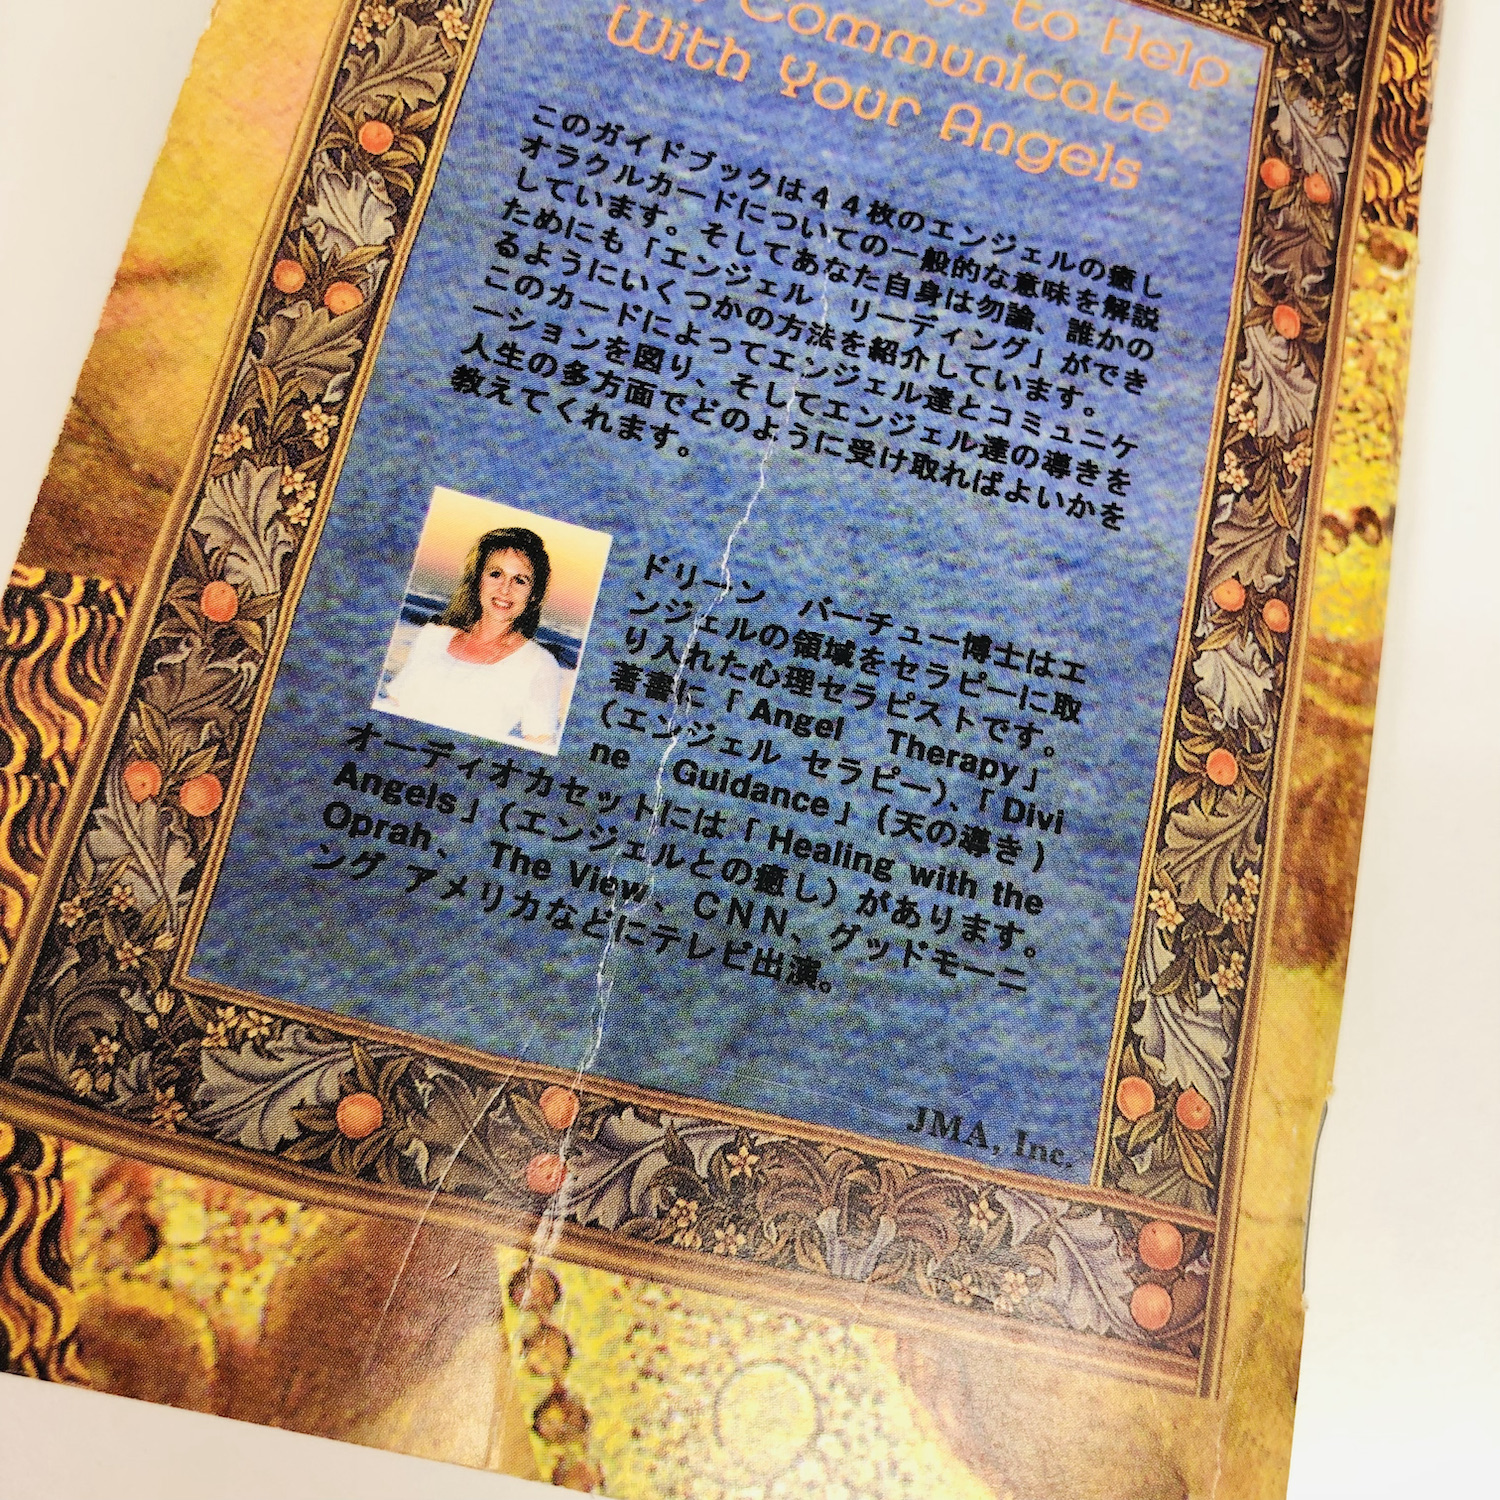 to Help
Communicate
With Your Angels
このガイドブックは44枚のエンジェルの癒し
オラクルカードについての一般的な意味を解説
しています。そしてあなた自身は勿論、誰かの
ためにも「エンジェル リーディング」ができ
るようにいくつかの方法を紹介しています。
このカードによってエンジェル達とコミュニケ
ーションを図り、そしてエンジェル達の導きを
人生の多方面でどのように受け取ればよいかを
教えてくれます。
ドリーン バーチュー博士はエ
ンジェルの領域をセラピーに取
り入れた心理セラピストです。
著書に「Angel Therapy」
(エンジェル セラピー)、「Divi
ne Guidance」(天の導き)
オーディオカセットには「Healing with the
Angels」(エンジェルとの癒し)があります。
Oprah、 The View、CNN、グッドモーニ
ング アメリカなどにテレビ出演。
JMA, Inc.